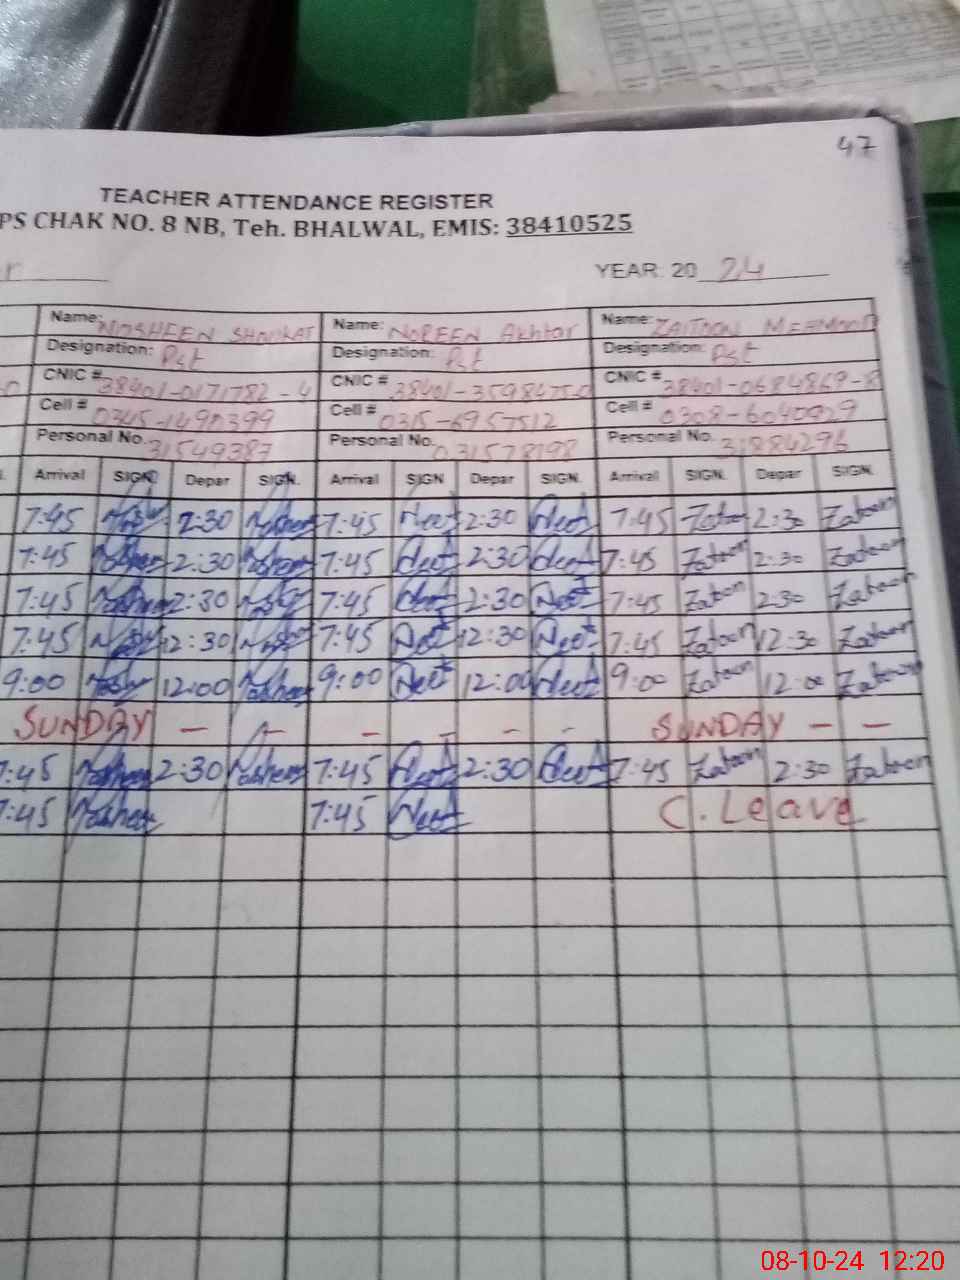 47
TEACHER ATTENDANCE REGISTER
PS CHAK NO. 8 NB, Teh. BHALWAL, EMIS: 38410525
r YEAR: 20 24
Name: NOSHEEN SHOUKAT Name: NOREEN Akhtar Name: ZAITOON MEHMOOD
Designation: Pst Designation: Pst Designation: Pst
CNIC # 38401-0171782-4 CNIC # 38401-3598475-0 CNIC # 38401-0684869-8
Cell # 0345-1490399 Cell # 0315-6957512 Cell # 0308-6040929
Personal No. 31549387 Personal No. 031578198 Personal No. 31884296
Arrival SIGN Depar SIGN. Arrival SIGN Depar SIGN. Arrival SIGN. Depar SIGN.
7:45 2:30 7:45 2:30 7:45 Zatoon 2:30 Zatoon
7:45 2:30 7:45 2:30 7:45 Zatoon 2:30 Zatoon
7:45 2:30 7:45 2:30 7:45 Zatoon 2:30 Zatoon
7:45 12:30 7:45 12:30 7:45 Zatoon 12:30 Zatoon
9:00 12:00 9:00 12:00 9:00 Zatoon 12:00 Zatoon
SUNDAY - - - - - - SUNDAY - -
7:45 2:30 7:45 2:30 7:45 Zatoon 2:30 Zatoon
7:45 7:45 C. Leave
08-10-24 12:20